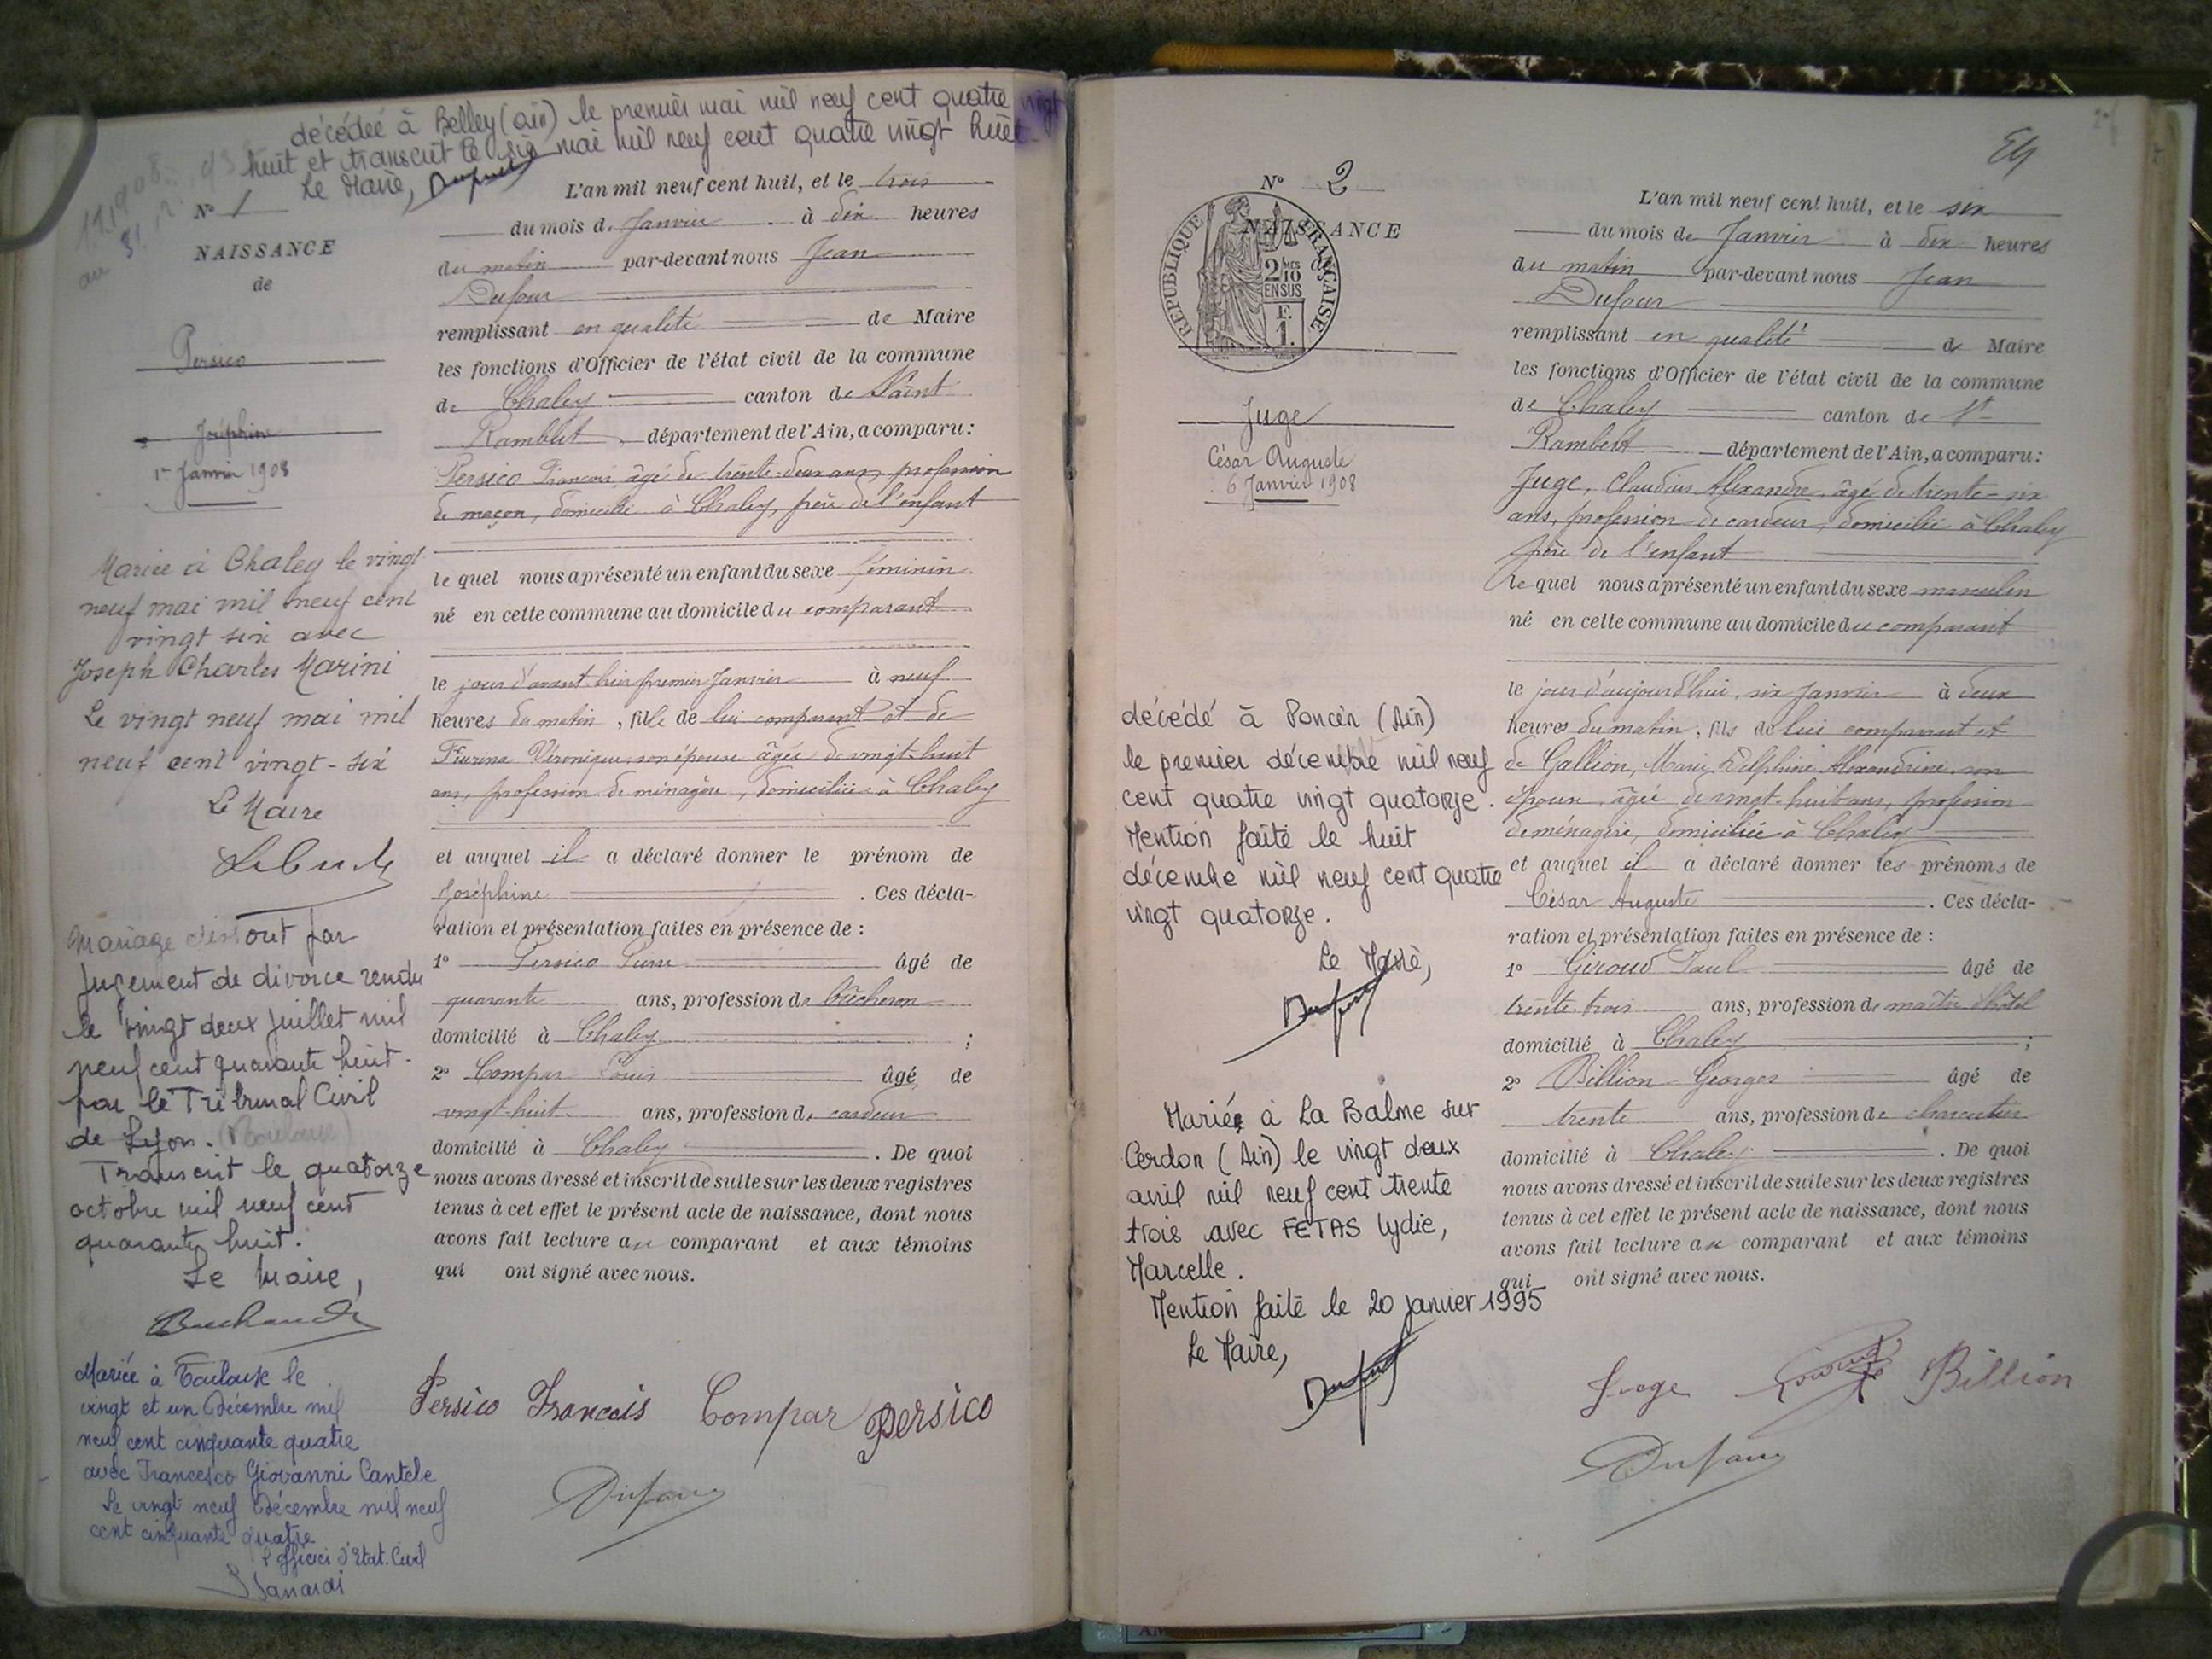 décédée à Belley (Ain) le premier mai mil neuf cent quatre vingt
huit et transcrit le six mai mil neuf cent quatre vingt huit
Le Maire,
N° 1
NAISSANCE
de
Persico
Joséphine
1er Janvier 1908
Mariée à Chaley le vingt
neuf mai mil neuf cent
vingt six avec
Joseph Charles Marini
Le vingt neuf mai mil
neuf cent vingt-six
Le Maire
Mariage dissout par
jugement de divorce rendu
le vingt deux juillet mil
neuf cent quarante huit
par le Tribunal Civil
de Lyon.
Transcrit le quatorze
octobre mil neuf cent
quarante huit.
Le Maire,
Mariée à Toulouse le
vingt et un Décembre mil
neuf cent cinquante quatre
avec Francesco Giovanni Cantele
Le vingt neuf Décembre mil neuf
cent cinquante quatre
l'officier d'Etat-Civil
L'an mil neuf cent huit, et le trois
du mois de Janvier à dix heures
du matin par-devant nous Jean
Dufour
remplissant en qualité de Maire
les fonctions d'Officier de l'état civil de la commune
de Chaley canton de Saint
Rambert département de l'Ain, a comparu :
Persico François, âgé de trente-deux ans, profession
de maçon, domicilié à Chaley, père de l'enfant
le quel nous a présenté un enfant du sexe féminin
né en cette commune au domicile du comparant
le jour d'avant-hier premier Janvier à neuf
heures du matin, fille de lui comparant et de
Véronique, son épouse âgée de vingt-huit
ans, profession de ménagère, domiciliée à Chaley
et auquel il a déclaré donner le prénom de
Joséphine . Ces décla-
ration et présentation faites en présence de :
1° Persico Pierre âgé de
quarante ans, profession de bûcheron
domicilié à Chaley ;
2° Compar Louis âgé de
vingt-huit ans, profession de cardeur
domicilié à Chaley . De quoi
nous avons dressé et inscrit de suite sur les deux registres
tenus à cet effet le présent acte de naissance, dont nous
avons fait lecture au comparant et aux témoins
qui ont signé avec nous.
Persico Francois Compar Persico
Dufour
N° 2
NAISSANCE
de
RÉPUBLIQUE FRANÇAISE
2/10 MES
EN SUS
F.
1.
Juge
César Auguste
6 Janvier 1908
décédé à Poncin (Ain)
le premier décembre mil neuf
cent quatre vingt quatorze.
Mention faite le huit
décembre mil neuf cent quatre
vingt quatorze.
Le Maire,
Mariée à La Balme sur
Cerdon (Ain) le vingt deux
avril mil neuf cent trente
trois avec FETAS Lydie,
Marcelle.
Mention faite le 20 janvier 1995
Le Maire,
L'an mil neuf cent huit, et le six
du mois de Janvier à dix heures
du matin par-devant nous Jean
Dufour
remplissant en qualité de Maire
les fonctions d'Officier de l'état civil de la commune
de Chaley canton de St
Rambert département de l'Ain, a comparu :
Juge, Claudius Alexandre, âgé de trente-six
ans, profession de cardeur, domicilié à Chaley
père de l'enfant
le quel nous a présenté un enfant du sexe masculin
né en cette commune au domicile du comparant
le jour d'aujourd'hui, six Janvier à deux
heures du matin, fils de lui comparant et
de Gallion, Marie Delphine Alexandrine, son
épouse, âgée de vingt-huit ans, profession
de ménagère, domiciliée à Chaley
et auquel il a déclaré donner les prénoms de
César Auguste . Ces décla-
ration et présentation faites en présence de :
1° Giroud Paul âgé de
trente-trois ans, profession de maître d'hôtel
domicilié à Chaley ;
2° Billion Georges âgé de
trente ans, profession de charcutier
domicilié à Chaley . De quoi
nous avons dressé et inscrit de suite sur les deux registres
tenus à cet effet le présent acte de naissance, dont nous
avons fait lecture au comparant et aux témoins
qui ont signé avec nous.
Juge Giroud Billion
Dufour